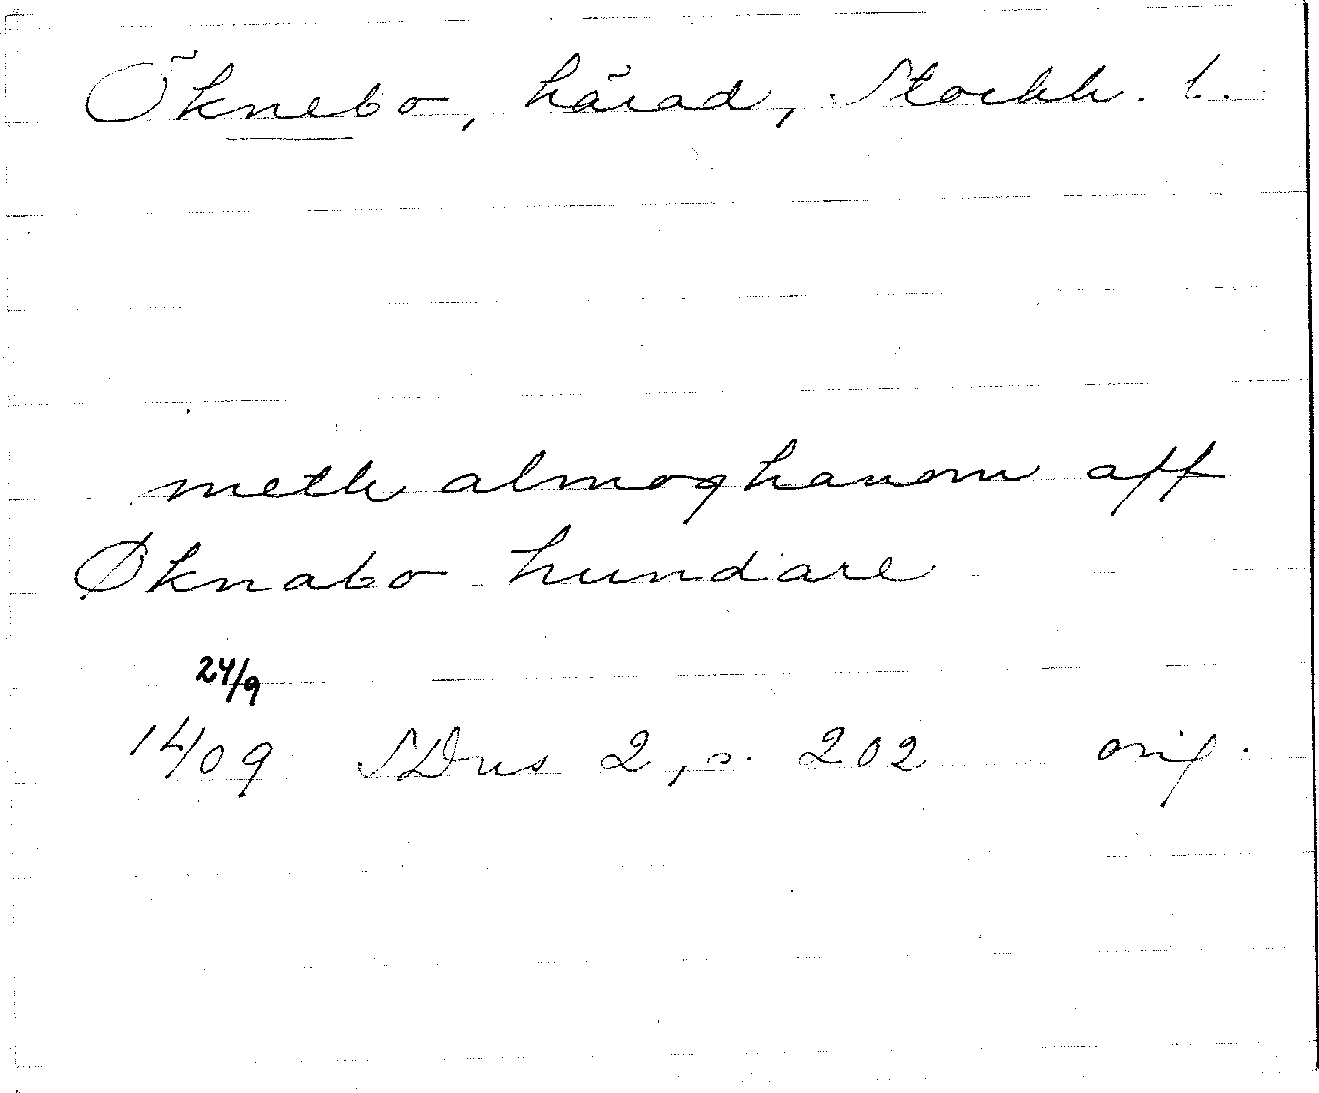 Öknebo, härad, Stockh. l.
meth almoghanom aff
Øknabo hundare
24/9
1409 SDns 2, s. 202 orig.